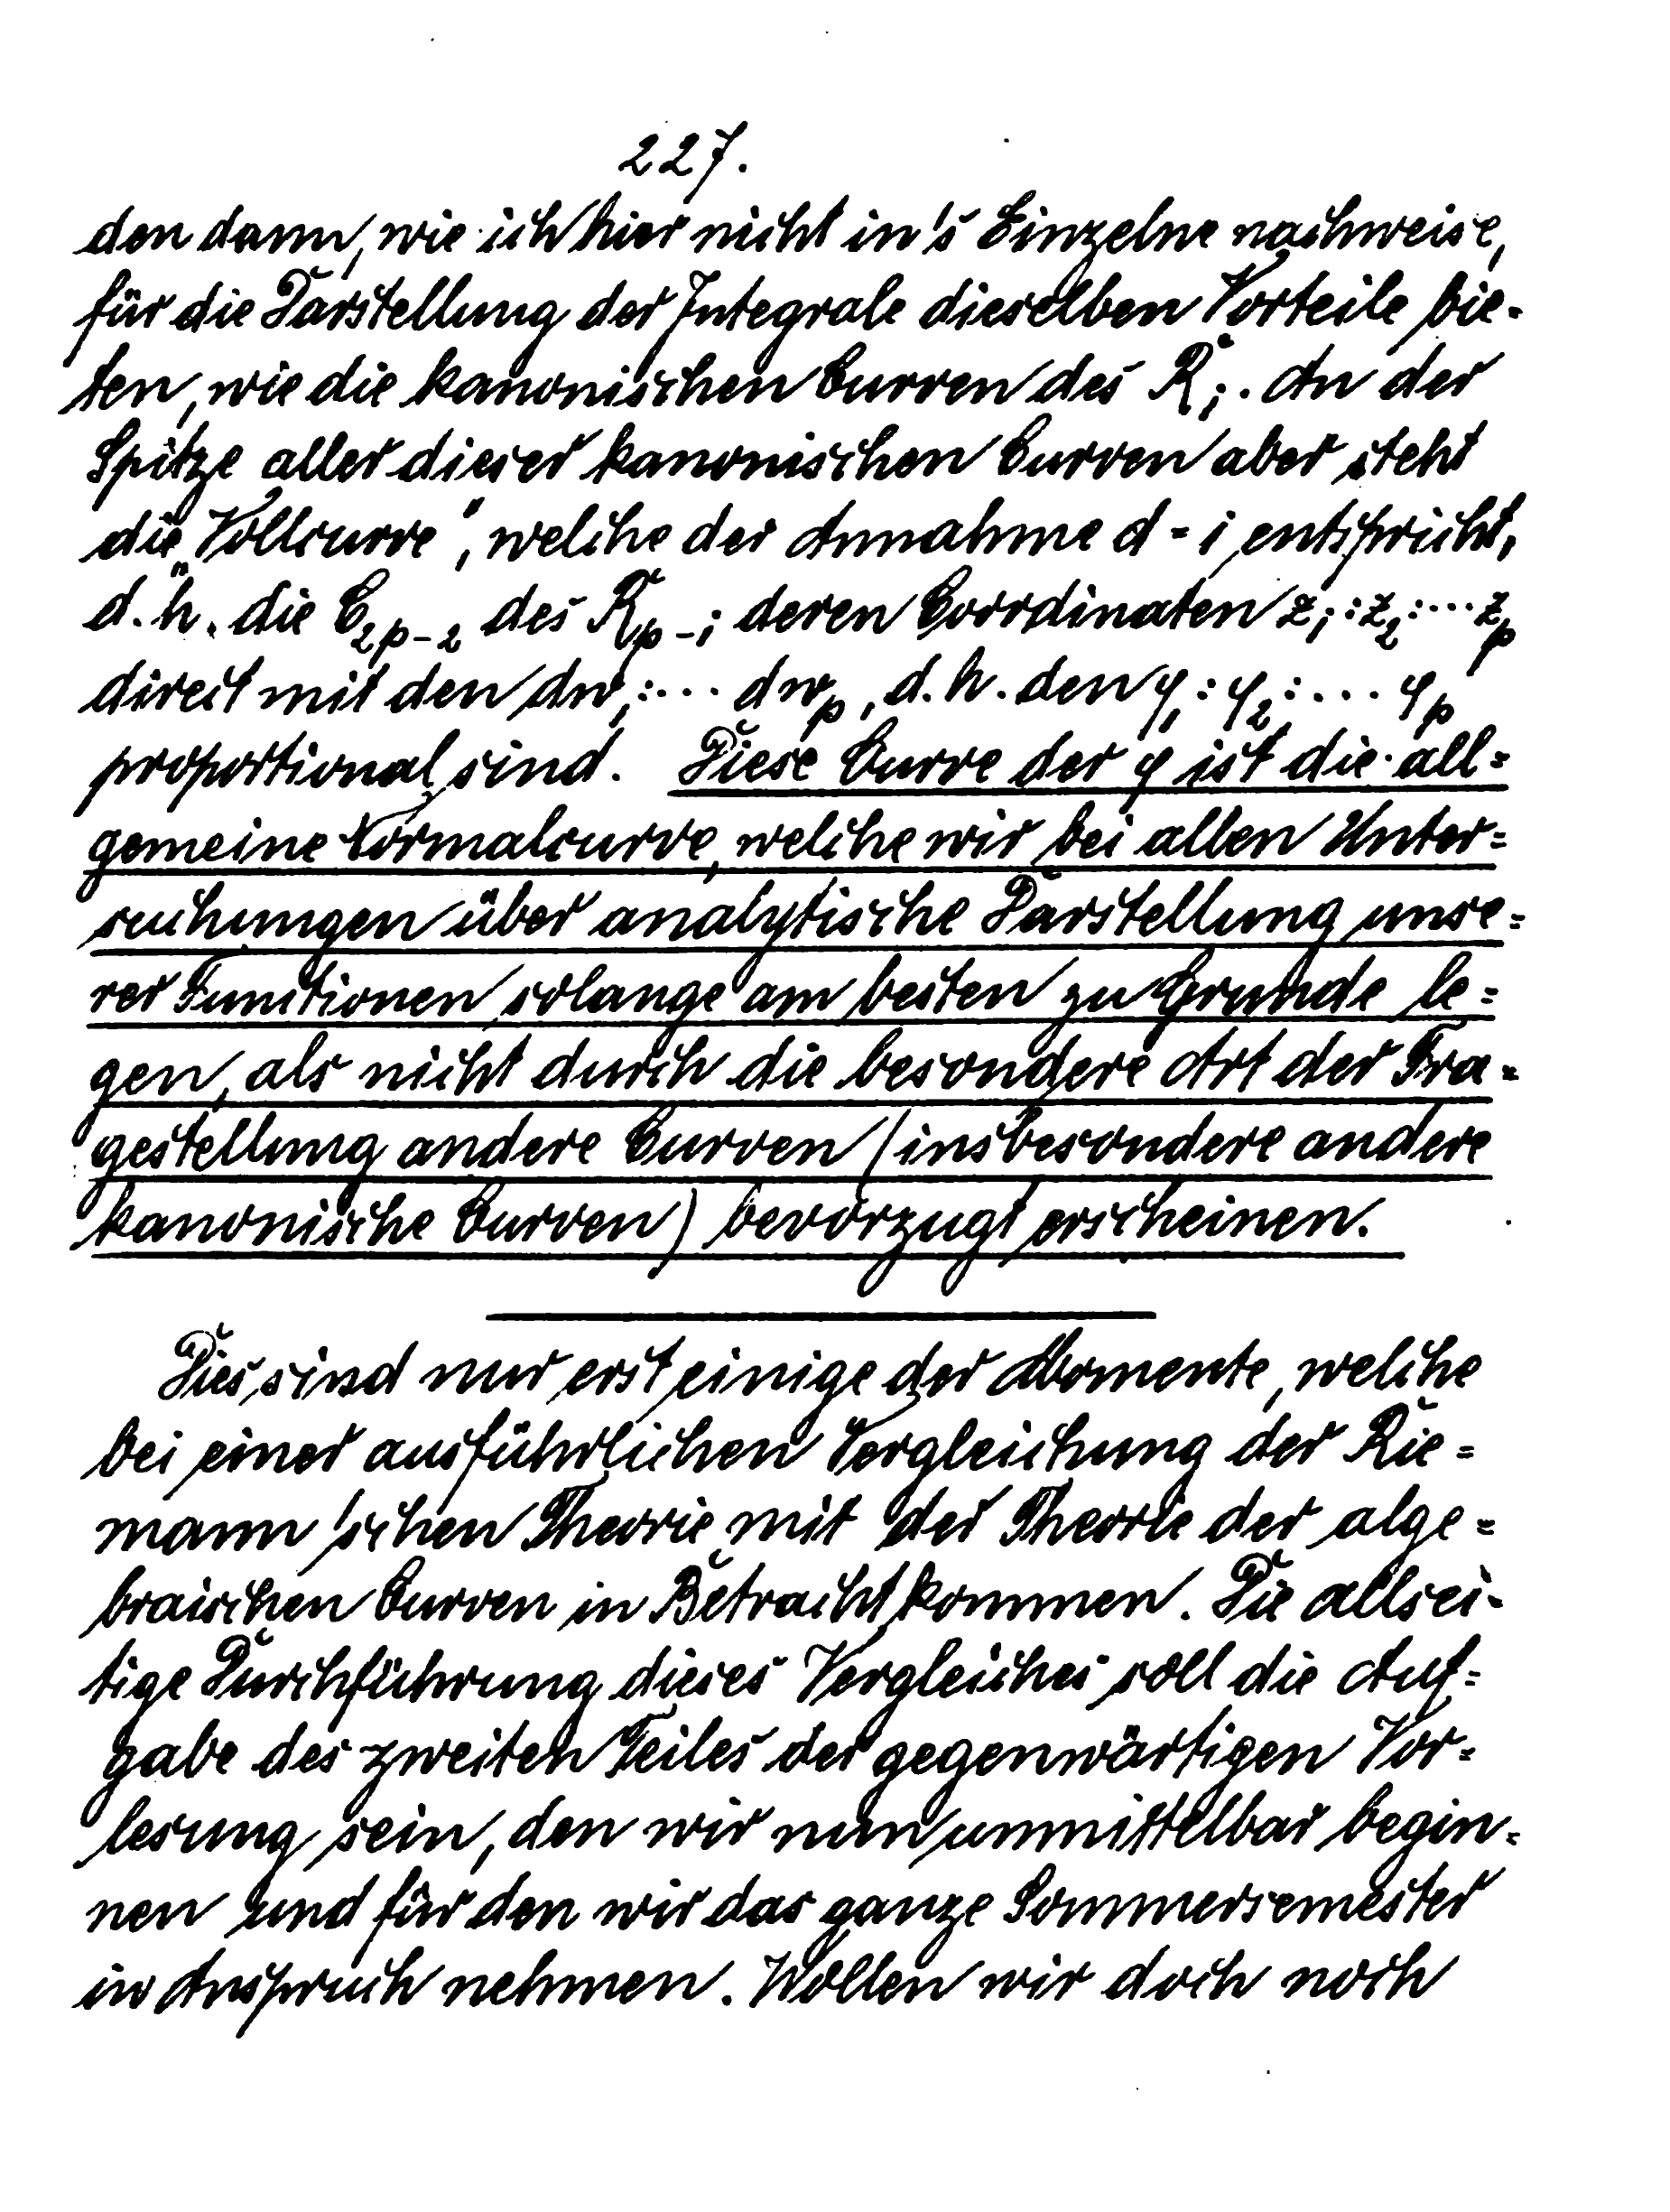 227.
den dann, wie ich hier nicht in's Einzelne nachweise,
für die Darstellung der Integrale dieselben Vorteile bie-
ten, wie die kanonischen Curven des R₁. An der
Spitze aller dieser kanonischen Curven aber steht
die „Vollcurve“, welche der Annahme d = 1 entspricht,
d. h. die C₂ₚ₋₂ des Rₚ₋₁ deren Coordinaten z₁ : z₂ : ... zₚ
direct mit den dw₁ : ... dwₚ, d. h. den φ₁ : φ₂ : ... φₚ
proportional sind. Diese Curve der φ ist die all=
gemeine Normalcurve, welche wir bei allen Unter=
suchungen über analytische Darstellung unse=
rer Functionen solange am besten zu Grunde le=
gen, als nicht durch die besondere Art der Fra=
gestellung andere Curven (insbesondere andere
kanonische Curven) bevorzugt erscheinen.
Dies sind nur erst einige der Momente, welche
bei einer ausführlichen Vergleichung der Rie=
mann'schen Theorie mit der Theorie der alge=
braischen Curven in Betracht kommen. Die allsei-
tige Durchführung dieses Vergleiches soll die Auf=
gabe des zweiten Teiles der gegenwärtigen Vor=
lesung sein, den wir nun unmittelbar begin=
nen und für den wir das ganze Sommersemester
in Anspruch nehmen. Wollen wir doch noch